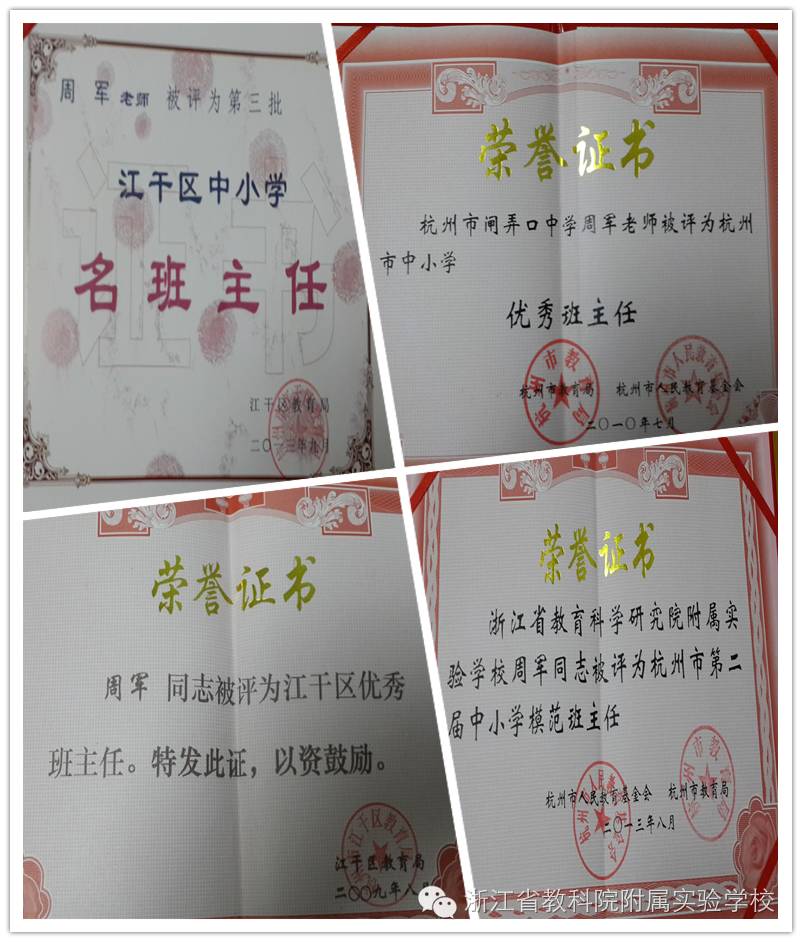 周军老师 被评为第三批
江干区中小学
名班主任
江干区教育局
二〇一三年九月
荣誉证书
杭州市闸弄口中学周军老师被评为杭州
市中小学
优秀班主任
杭州市教育局 杭州市人民教育基金会
二〇一〇年七月
荣誉证书
周军 同志被评为江干区优秀
班主任。特发此证，以资鼓励。
江干区教育局
二〇〇九年八月
荣誉证书
浙江省教育科学研究院附属实
验学校周军同志被评为杭州市第二
届中小学模范班主任
杭州市人民教育基金会 杭州市教育局
二〇一三年八月
浙江省教科院附属实验学校